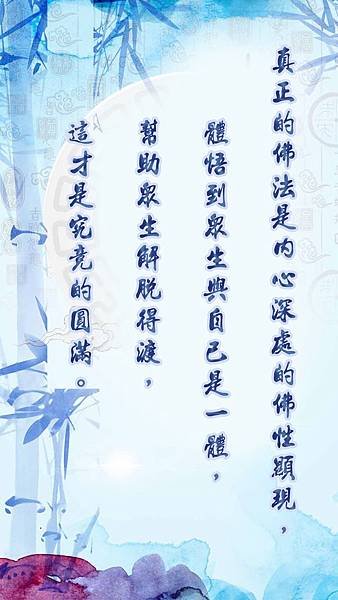 真正的佛法是內心深處的佛性顯現，
體悟到眾生與自己是一體，
幫助眾生解脫得渡，
這才是究竟的圓滿。